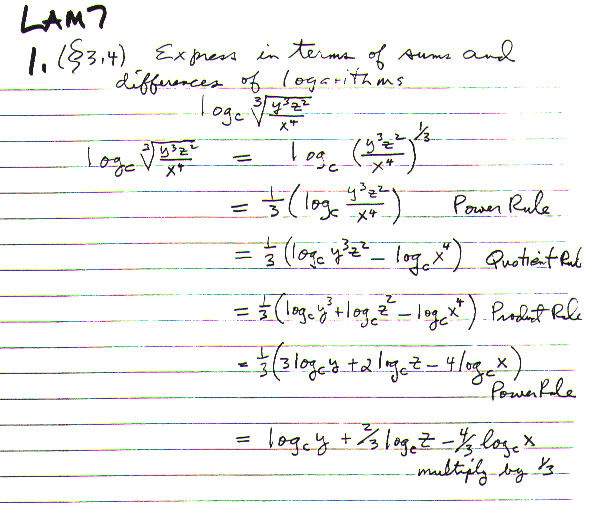 LAM7
1. (§3,4) Express in terms of sums and
differences of logarithms
log_c ∛(y³z²/x⁴)
log_c ∛(y³z²/x⁴) = log_c (y³z²/x⁴)^(1/3)
= 1/3 (log_c y³z²/x⁴) Power Rule
= 1/3 (log_c y³z² − log_c x⁴) Quotient Rul
= 1/3 (log_c y³ + log_c z² − log_c x⁴) Product Rule
= 1/3 (3 log_c y + 2 log_c z − 4 log_c x)
Power Rule
= log_c y + 2/3 log_c z − 4/3 log_c x
multiply by 1/3